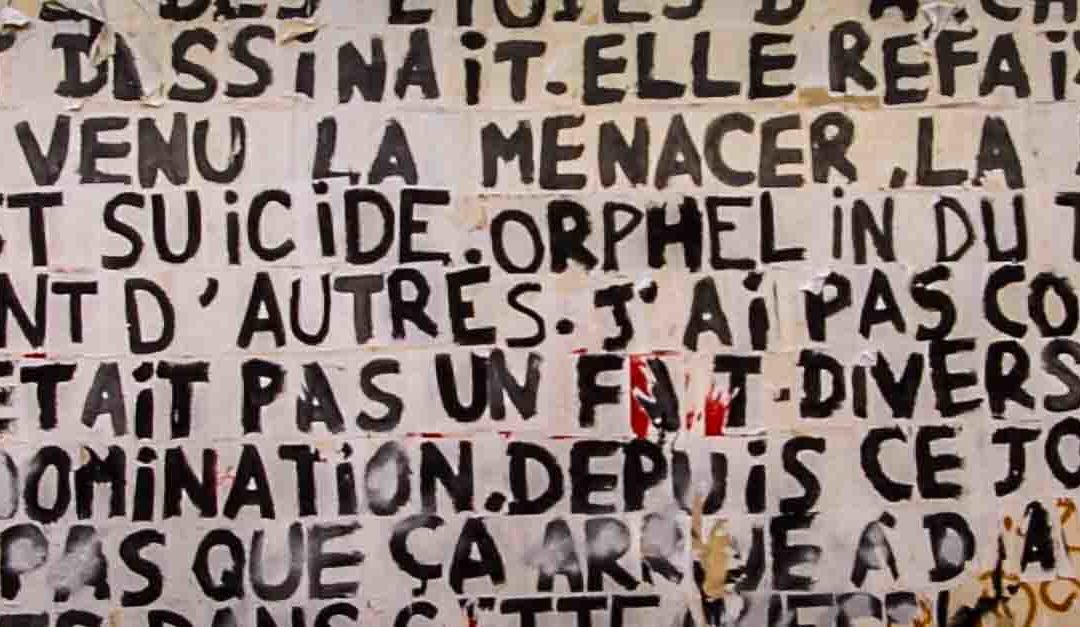 DES ETOILES D'A
DESSINAIT. ELLE REFAI
VENU LA MENACER. LA
T SUICIDE. ORPHELIN DU T
NT D'AUTRES. J'AI PAS CO
ETAIT PAS UN FAIT-DIVERS
DOMINATION. DEPUIS CE JO
PAS QUE ÇA ARRIVE À D'A
DANS CETTE